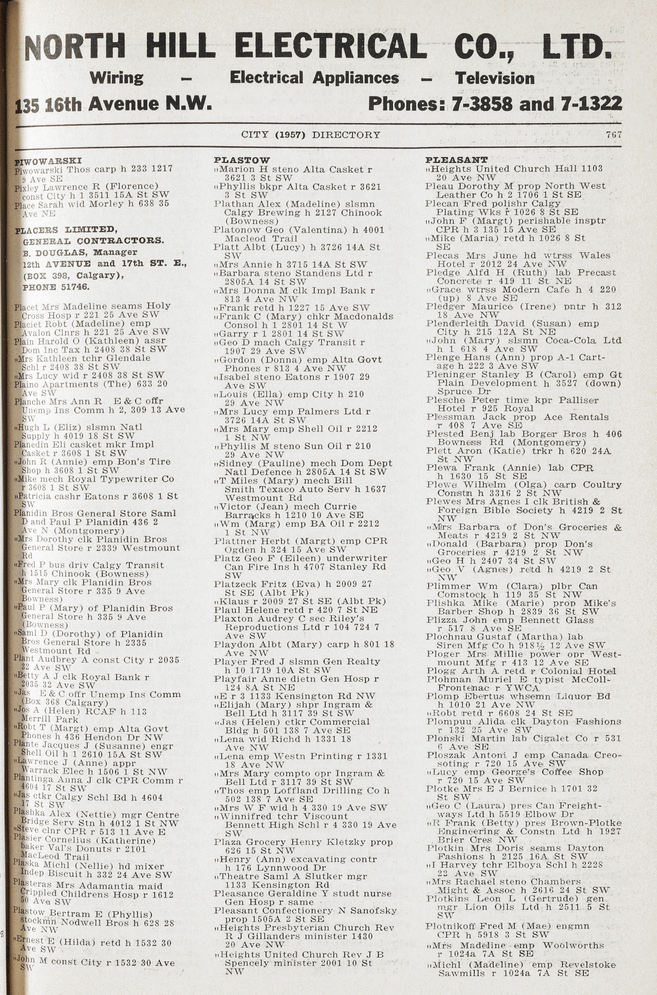 NORTH HILL ELECTRICAL CO., LTD.
Wiring – Electrical Appliances – Television
135 16th Avenue N.W. Phones: 7-3858 and 7-1322
CITY (1957) DIRECTORY 767
PIWOWARSKI
Piwowarski Thos carp h 233 1217
9 Ave SE
Pixley Lawrence R (Florence)
const City h 1 3511 15A St SW
Place Sarah wid Morley h 638 35
Ave NE
PLACERS LIMITED,
GENERAL CONTRACTORS.
B. DOUGLAS, Manager
12th AVENUE and 17th ST. E.,
(BOX 398, Calgary),
PHONE 51746.
Placet Mrs Madeline seams Holy
Cross Hosp r 221 25 Ave SW
Placiet Robt (Madeline) emp
Avalon Clnrs h 221 25 Ave SW
Plain Harold O (Kathleen) assr
Dom Inc Tax h 2408 38 St SW
"Mrs Kathleen tchr Glendale
Schl r 2408 38 St SW
"Mrs Lucy wid r 2408 38 St SW
Plaino Apartments (The) 633 20
Ave SW
Planche Mrs Ann R E & C offr
Unemp Ins Comm h 2, 309 13 Ave
SW
"Hugh L (Eliz) slsmn Natl
Supply h 4019 18 St SW
Planedin Eli casket mkr Impl
Casket r 3608 1 St SW
"John R (Annie) emp Bon's Tire
Shop h 3608 1 St SW
"Mike mech Royal Typewriter Co
r 3608 1 St SW
"Patricia cashr Eatons r 3608 1 St
SW
Planidin Bros General Store Saml
D and Paul P Planidin 436 2
Ave N (Montgomery)
"Mrs Dorothy clk Planidin Bros
General Store r 2339 Westmount
Rd
"Fred P bus driv Calgy Transit
h 1515 Chinook (Bowness)
"Mrs Mary clk Planidin Bros
General Store r 335 9 Ave
(Bowness)
"Paul P (Mary) of Planidin Bros
General Store h 335 9 Ave
(Bowness)
"Saml D (Dorothy) of Planidin
Bros General Store h 2335
Westmount Rd
Plant Audbrey A const City r 2035
32 Ave SW
"Betty A J clk Royal Bank r
2035 32 Ave SW
"Jas E & C offr Unemp Ins Comm
(Box 368 Calgary)
"Jos A (Helen) RCAF h 113
Merrill Park
"Robt T (Margt) emp Alta Govt
Phones h 436 Hendon Dr NW
Plante Jacques J (Susanne) engr
Shell Oil h 1 2610 15A St SW
"Lawrence J (Anne) appr
Warrack Elec h 1506 1 St NW
Plantinga Anna J clk CPR Comm r
4604 17 St SW
"Jas ctkr Calgy Schl Bd h 4604
17 St SW
Plashka Alex (Nettie) mgr Centre
Bridge Serv Stn h 4012 1 St NW
"Steve clnr CPR r 513 11 Ave E
Plasier Cornelius (Katherine)
baker Val's Donuts r 2101
MacLeod Trail
Plaska Michl (Nellie) hd mixer
Indep Biscuit h 332 24 Ave SW
Plasteras Mrs Adamantia maid
Crippled Childrens Hosp r 1612
50 Ave SW
Plastow Bertram E (Phyllis)
stockmn Nodwell Bros h 628 28
Ave NW
"Ernest E (Hilda) retd h 1532 30
Ave SW
"John M const City r 1532 30 Ave
SW
PLASTOW
"Marion H steno Alta Casket r
3621 3 St SW
"Phyllis bkpr Alta Casket r 3621
3 St SW
Plathan Alex (Madeline) slsmn
Calgy Brewing h 2127 Chinook
(Bowness)
Platonow Geo (Valentina) h 4001
Macleod Trail
Platt Albt (Lucy) h 3726 14A St
SW
"Mrs Annie h 3715 14A St SW
"Barbara steno Standens Ltd r
2805A 14 St SW
"Mrs Donna M clk Impl Bank r
813 4 Ave NW
"Frank retd h 1227 15 Ave SW
"Frank C (Mary) chkr Macdonalds
Consol h 1 2801 14 St W
"Garry r 1 2801 14 St SW
"Geo D mach Calgy Transit r
1907 29 Ave SW
"Gordon (Donna) emp Alta Govt
Phones r 813 4 Ave NW
"Isabel steno Eatons r 1907 29
Ave SW
"Louis (Ella) emp City h 210
29 Ave NW
"Mrs Lucy emp Palmers Ltd r
3726 14A St SW
"Mrs Mary emp Shell Oil r 2212
1 St NW
"Phyllis M steno Sun Oil r 210
29 Ave NW
"Sidney (Pauline) mech Dom Dept
Natl Defence h 2805A 14 St SW
"T Miles (Mary) mech Bill
Smith Texaco Auto Serv h 1637
Westmount Rd
"Victor (Jean) mech Currie
Barracks h 1210 10 Ave SE
"Wm (Marg) emp BA Oil r 2212
1 St NW
Plattner Herbt (Margt) emp CPR
Ogden h 324 15 Ave SW
Platz Geo F (Eileen) underwriter
Can Fire Ins h 4707 Stanley Rd
SW
Platzeck Fritz (Eva) h 2009 27
St SE (Albt Pk)
"Klaus r 2009 27 St SE (Albt Pk)
Plaul Helene retd r 420 7 St NE
Plaxton Audrey C sec Riley's
Reproductions Ltd r 104 724 7
Ave SW
Playdon Albt (Mary) carp h 801 18
Ave NW
Player Fred J slsmn Gen Realty
h 10 1719 10A St SW
Playfair Anne dietn Gen Hosp r
124 8A St NE
"E r 3 1133 Kensington Rd NW
"Elijah (Mary) shpr Ingram &
Bell Ltd h 3117 39 St SW
"Jas (Helen) ctkr Commercial
Bldg h 501 138 7 Ave SE
"Lena wid Richd h 1331 18
Ave NW
"Lena emp Westn Printing r 1331
18 Ave NW
"Mrs Mary compto opr Ingram &
Bell Ltd r 3117 39 St SW
"Thos emp Loffland Drilling Co h
502 138 7 Ave SE
"Mrs W F wid h 4 330 19 Ave SW
"Winnifred tchr Viscount
Bennett High Schl r 4 330 19 Ave
SW
Plaza Grocery Henry Kletzky prop
626 15 St NW
"Henry (Ann) excavating contr
h 176 Lynnwood Dr
"Theatre Saml A Slutker mgr
1133 Kensington Rd
Pleasance Geraldine Y studt nurse
Gen Hosp r same
Pleasant Confectionery N Sanofsky
prop 1505A 2 St SE
"Heights Presbyterian Church Rev
R J Gillanders minister 1430
20 Ave NW
"Heights United Church Rev J B
Spencely minister 2001 10 St
NW
PLEASANT
"Heights United Church Hall 1103
20 Ave NW
Pleau Dorothy M prop North West
Leather Co h 2 1706 1 St SE
Plecan Fred polishr Calgy
Plating Wks r 1026 8 St SE
"John F (Margt) perishable insptr
CPR h 3 135 15 Ave SE
"Mike (Maria) retd h 1026 8 St
SE
Plecas Mrs June hd wtrss Wales
Hotel r 2012 24 Ave NW
Pledge Alfd H (Ruth) lab Precast
Concrete r 419 11 St NE
"Grace wtrss Modern Cafe h 4 220
(up) 8 Ave SE
Pledger Maurice (Irene) pntr h 312
18 Ave NW
Plenderleith David (Susan) emp
City h 215 12A St NE
"John (Mary) slsmn Coca-Cola Ltd
h 1 618 4 Ave SW
Plenge Hans (Ann) prop A-1 Cart-
age h 222 3 Ave SW
Pleninger Stanley B (Carol) emp Gt
Plain Development h 3527 (down)
Spruce Dr
Plesche Peter time kpr Palliser
Hotel r 925 Royal
Plessman Jack prop Ace Rentals
r 408 7 Ave SE
Plested Benj lab Borger Bros h 406
Bowness Rd (Montgomery)
Plett Aron (Katie) trkr h 620 24A
St NW
Plewa Frank (Annie) lab CPR
h 1630 15 St SE
Plewe Wilhelm (Olga) carp Coultry
Constn h 3316 2 St NW
Plewes Mrs Agnes I clk British &
Foreign Bible Society h 4219 2 St
NW
"Mrs Barbara of Don's Groceries &
Meats r 4219 2 St NW
"Donald (Barbara) prop Don's
Groceries r 4219 2 St NW
"Geo H h 2407 34 St SW
"Geo V (Agnes) retd h 4219 2 St
NW
Plimmer Wm (Clara) plbr Can
Comstock h 119 35 St NW
Plishka Mike (Marie) prop Mike's
Barber Shop h 2839 36 St SW
Plizza John emp Bennett Glass
r 517 8 Ave SE
Plochnau Gustaf (Martha) lab
Siren Mfg Co h 918½ 12 Ave SW
Ploger Mrs Millie power opr West-
mount Mfg r 413 12 Ave SE
Plogg Arth A retd r Colonial Hotel
Plohman Muriel E typist McColl-
Frontenac r YWCA
Plomp Ebertus whsemn Liquor Bd
h 1010 21 Ave NW
"Robt retd r 6608 24 St SE
Plompun Alida clk Dayton Fashions
r 132 25 Ave SW
Plonski Martin lab Cigalet Co r 531
6 Ave SE
Ploszak Antoni J emp Canada Creo-
soting r 720 15 Ave SW
"Lucy emp George's Coffee Shop
r 720 15 Ave SW
Plotke Mrs E J Bernice h 1701 32
St SW
"Geo C (Laura) pres Can Freight-
ways Ltd h 5519 Elbow Dr
"R Frank (Betty) pres Brown-Plotke
Engineering & Constn Ltd h 1927
Brier Cres NW
Plotkin Mrs Doris seams Dayton
Fashions h 2125 16A St SW
"I Harvey tchr Elboya Schl h 2228
22 Ave SW
"Mrs Rachael steno Chambers
Might & Assoc h 2616 24 St SW
Plotkins Leon L (Gertrude) gen
mgr Lion Oils Ltd h 2511 5 St
SW
Plotnikoff Fred M (Mae) engmn
CPR h 5918 3 St SW
"Mrs Madeline emp Woolworths
r 1024a 7A St SE
"Michl (Madeline) emp Revelstoke
Sawmills r 1024a 7A St SE